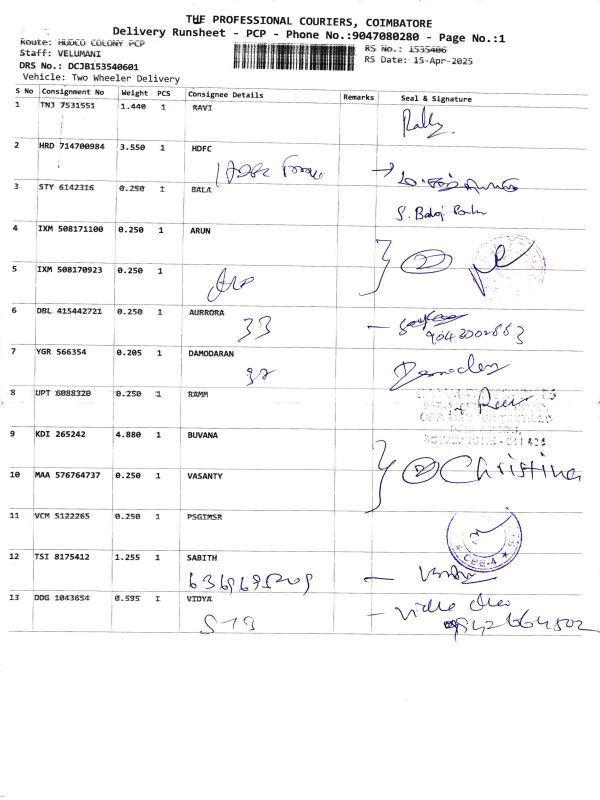 THE PROFESSIONAL COURIERS, COIMBATORE
Delivery Runsheet - PCP - Phone No.:9047080280 - Page No.:1
Route: HUDCO COLONY PCP
RS No.: 1535406
Staff: VELUMANI
RS Date: 15-Apr-2025
DRS No.: DCJB153540601
Vehicle: Two Wheeler Delivery
S No Consignment No Weight PCS Consignee Details Remarks Seal & Signature
1 TNJ 7531551 1.440 1 RAVI
2 HRD 714700984 3.550 1 HDFC
3 STY 6142316 0.250 1 BALA
S. Balaji
4 IXM 508171100 0.250 1 ARUN
2
5 IXM 508170923 0.250 1
6 DBL 415442721 0.250 1 AURRORA
33
9043002883
7 YGR 566354 0.205 1 DAMODARAN
8 UPT 6088320 0.250 1 RAMM
9 KDI 265242 4.880 1 BUVANA
10 MAA 576764737 0.250 1 VASANTY
2 Christina
11 VCM 5122265 0.250 1 PSGIMSR
CBE-4
12 TSI 8175412 1.255 1 SABITH
6369695209
13 DDG 1043654 0.595 1 VIDYA